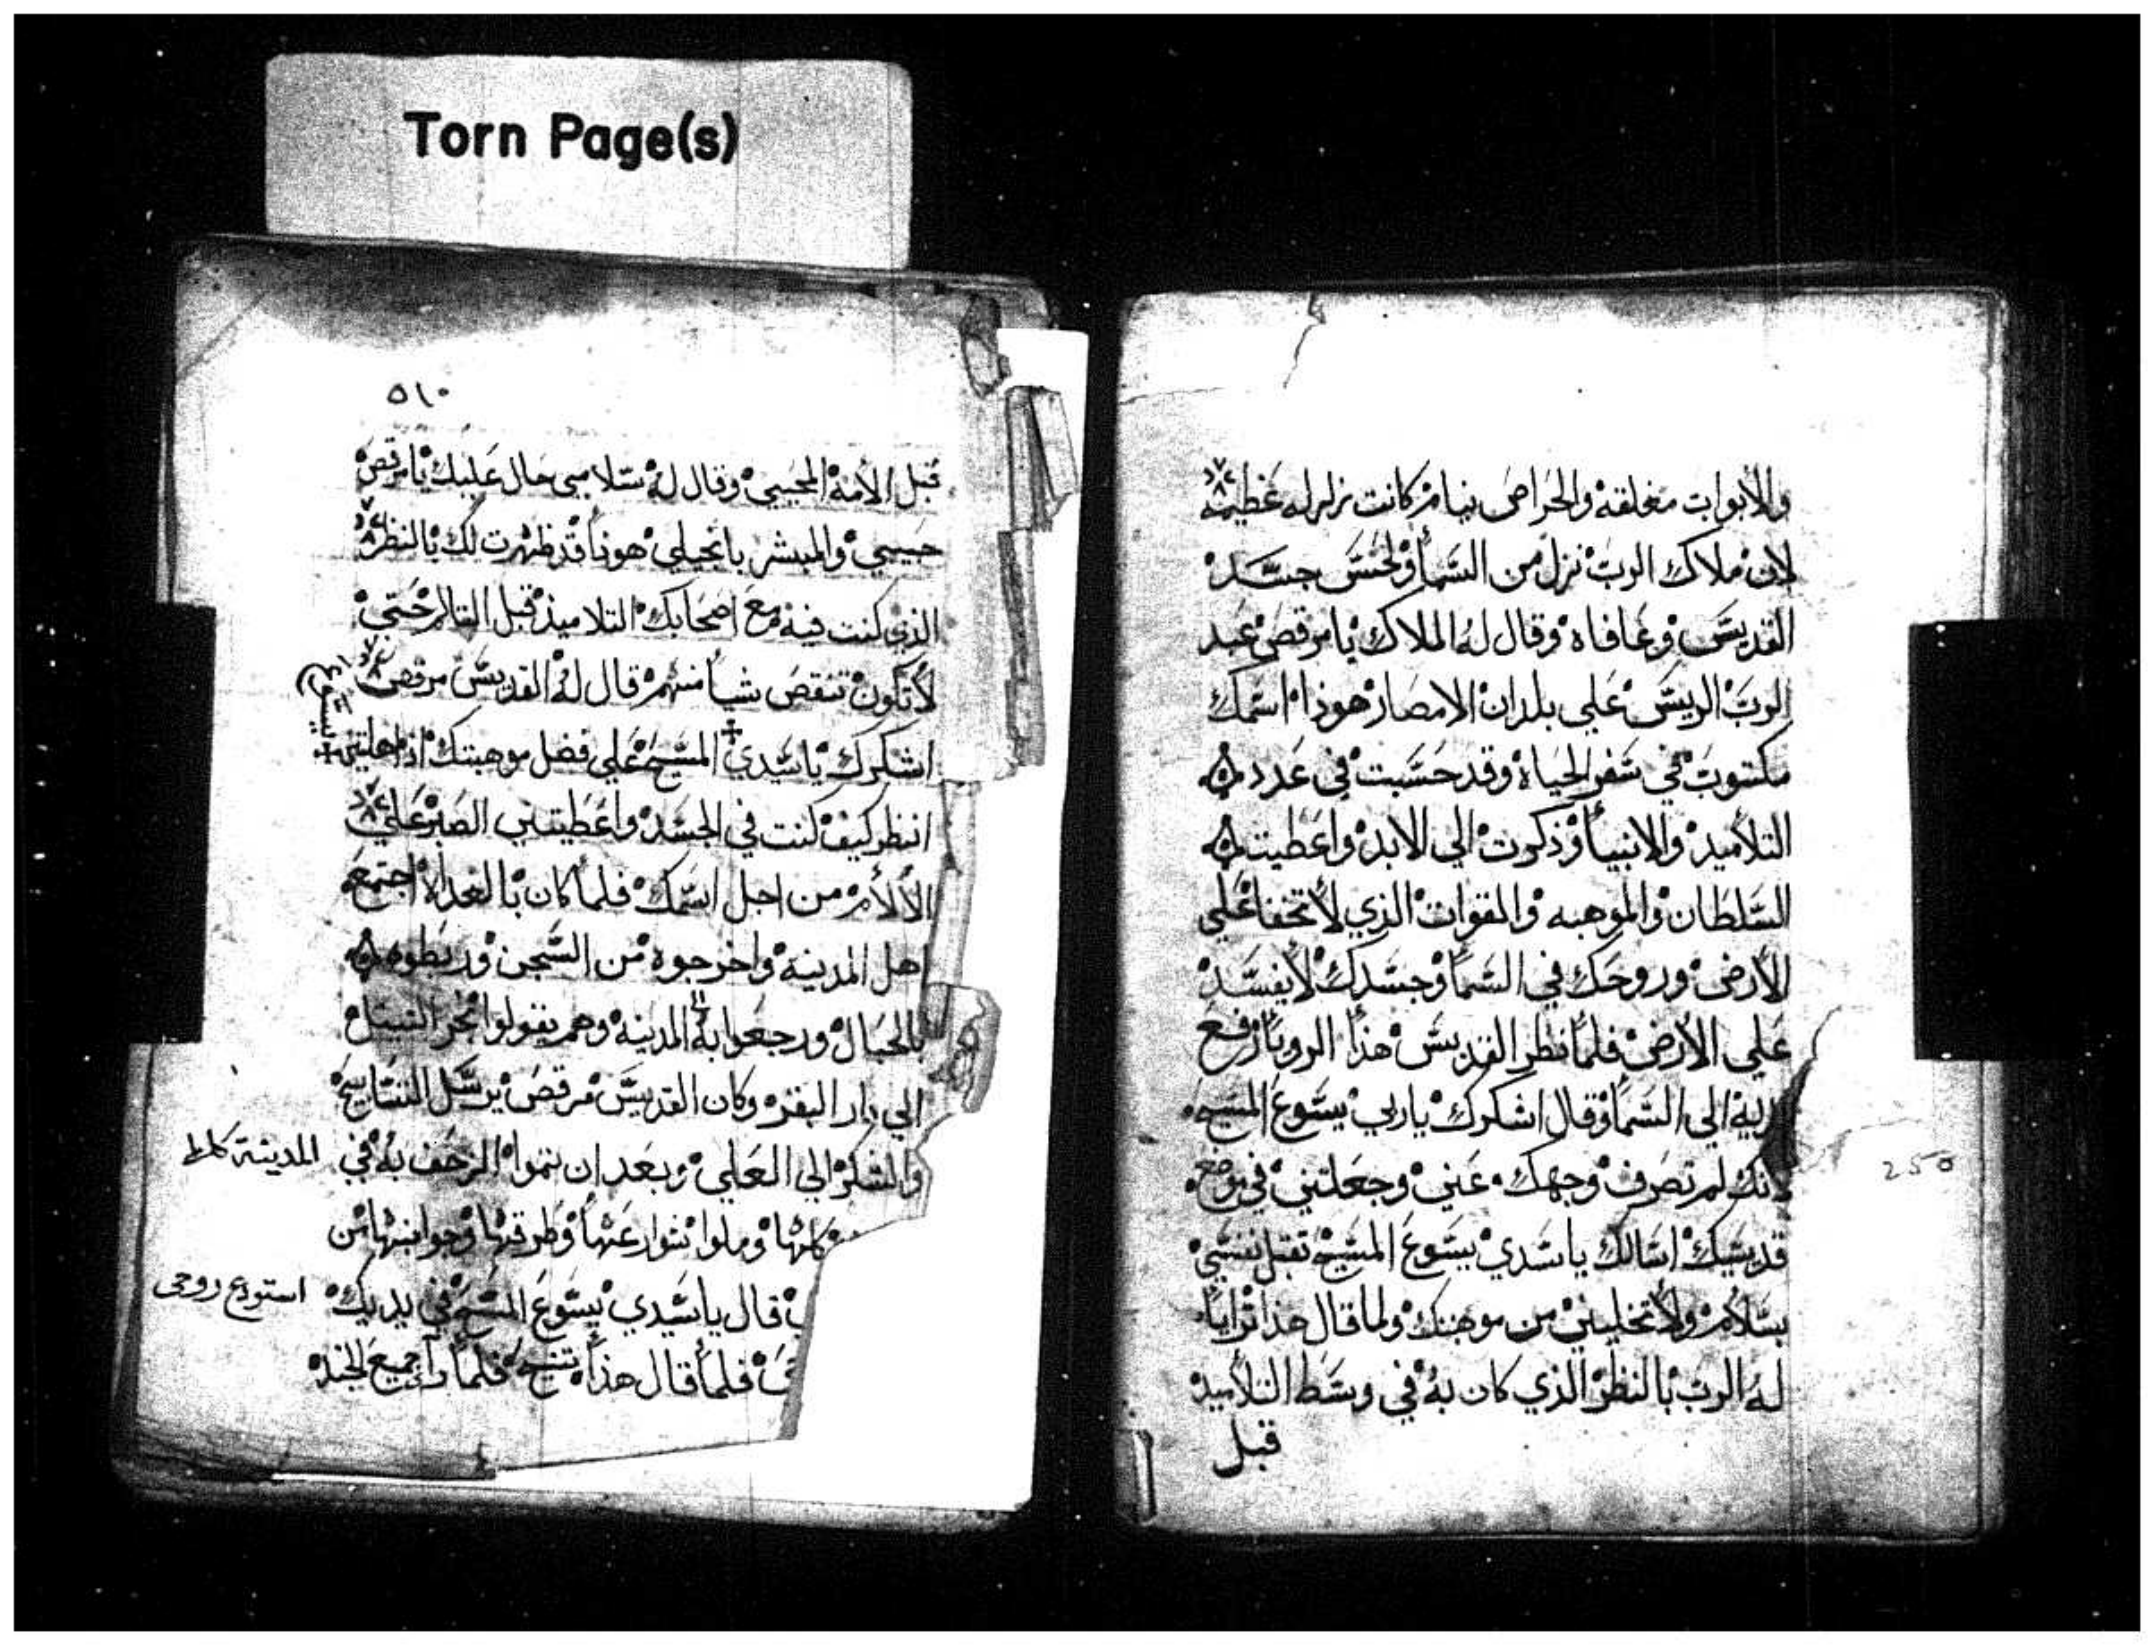 Torn Page(s)
والابواب مغلقه والحراص نيام كانت زلزله عظيمه
لان ملاك الرب نزل من السما ولمس جسد
القديس وعافاه وقال له الملاك يا مرقص عبد
الرب الريس علي بلدان الامصار هوذا اسمك
مكتوب في سفر الحياه وقد حسبت في عدد
التلاميد والانبيا وذكرت الي الابد واعطيت
السلطان والموهبه والمقوات الذي لا تخفا علي
الارض وروحك في السما وجسدك لا يفسد
علي الارض فلما نظر القديس هذا الرويا رفع
يديه الي السما وقال اشكرك ياربي يسوع المسيح
لانك لم تصرف وجهك عني وجعلتني في موضع
قديسيك اسالك يا سدي يسوع المسيح تقبل نفسي
بسلام ولا تخليني من موهبتك ولما قال هذا ترايا
له الرب بالنظر الذي كان به في وسط التلاميد
قبل
250
٥١٠
قبل الالامه المحيي وقال له سلامي حال عليك يا مرقص
حبيبي والمبشر بانجيلي هوذا قد ظهرت لك بالنظر
الذي كنت فيه مع اصحابك التلاميذ قبل التالم حتي
لا تكون تنقص شيا منهم قال له القديس مرقص
اشكرك يا سيدي المسيح علي فضل موهبتك اذ اهلتني
انظر كيف كنت في الجسد واعطيتني الصبر علي
الالام من اجل اسمك فلما كان بالغداه اجتمع
اهل المدينه واخرجوه من السجن وربطوه
بالحبال ورجعوا به المدينه وهم يقولوا نجر التيتل
الي دار البقر وكان القديس مرقص يرسل التسابيح
والشكر الي العلي وبعد ان تموا الزحف به في المدينة
كلها وملوا شوارعها وطرقها وجوانبها من
قال يا سيدي يسوع المسيح في يديك استودع روحي
فلما قال هذا تنيح فلما راجميع الجند